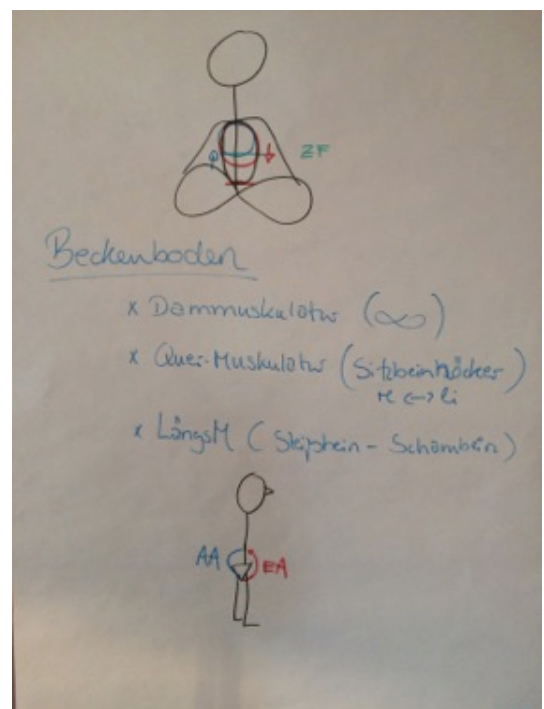 ZF
Beckenboden
x Dammuskulatur (∞)
x Quer-Muskulatur (Sitzbeinhöcker)
re <-> li
x LängsM (Steißbein - Schambein)
AA EA